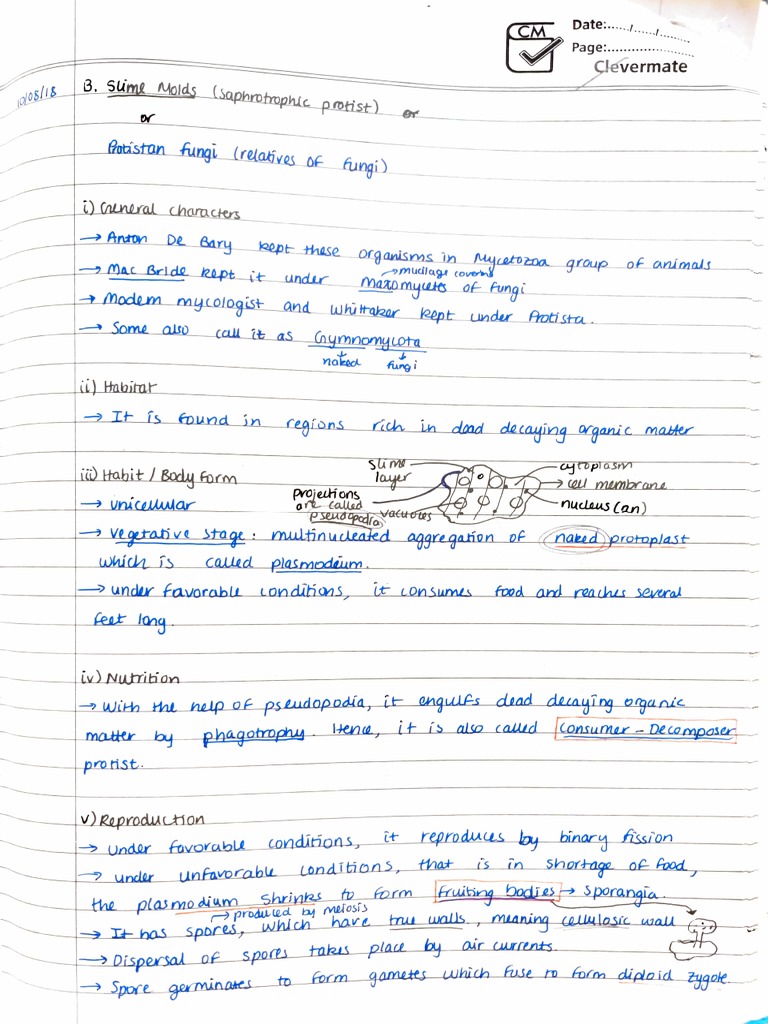 CM
Date:....../....../......
Page:......................
Clevermate
10/08/18
B. Slime Molds (saphrotrophic protist) or
or
Protistan fungi (relatives of fungi)
i) General characters
→ Anton De Bary kept these organisms in Mycetozoa group of animals
→ mucilage covering
→ Mac Bride kept it under maxomycetes of fungi
→ Modern mycologist and Whittaker kept under Protista.
→ Some also call it as Gymnomycota
naked fungi
ii) Habitat
→ It is found in regions rich in dead decaying organic matter
iii) Habit / Body form
slime layer
cytoplasm
→ cell membrane
nucleus (2n)
projections are called pseudopodia
vacuoles
→ unicellular
→ vegetative stage: multinucleated aggregation of naked protoplast
which is called plasmodium.
→ under favorable conditions, it consumes food and reaches several
feet long.
iv) Nutrition
→ With the help of pseudopodia, it engulfs dead decaying organic
matter by phagotrophy. Hence, it is also called Consumer - Decomposer
protist.
v) Reproduction
→ under favorable conditions, it reproduces by binary fission
→ under unfavorable conditions, that is in shortage of food,
the plasmodium shrinks to form fruiting bodies → sporangia.
→ produced by meiosis
→ It has spores, which have true walls, meaning cellulosic wall
→ Dispersal of spores takes place by air currents.
→ Spore germinates to form gametes which fuse to form diploid zygote.